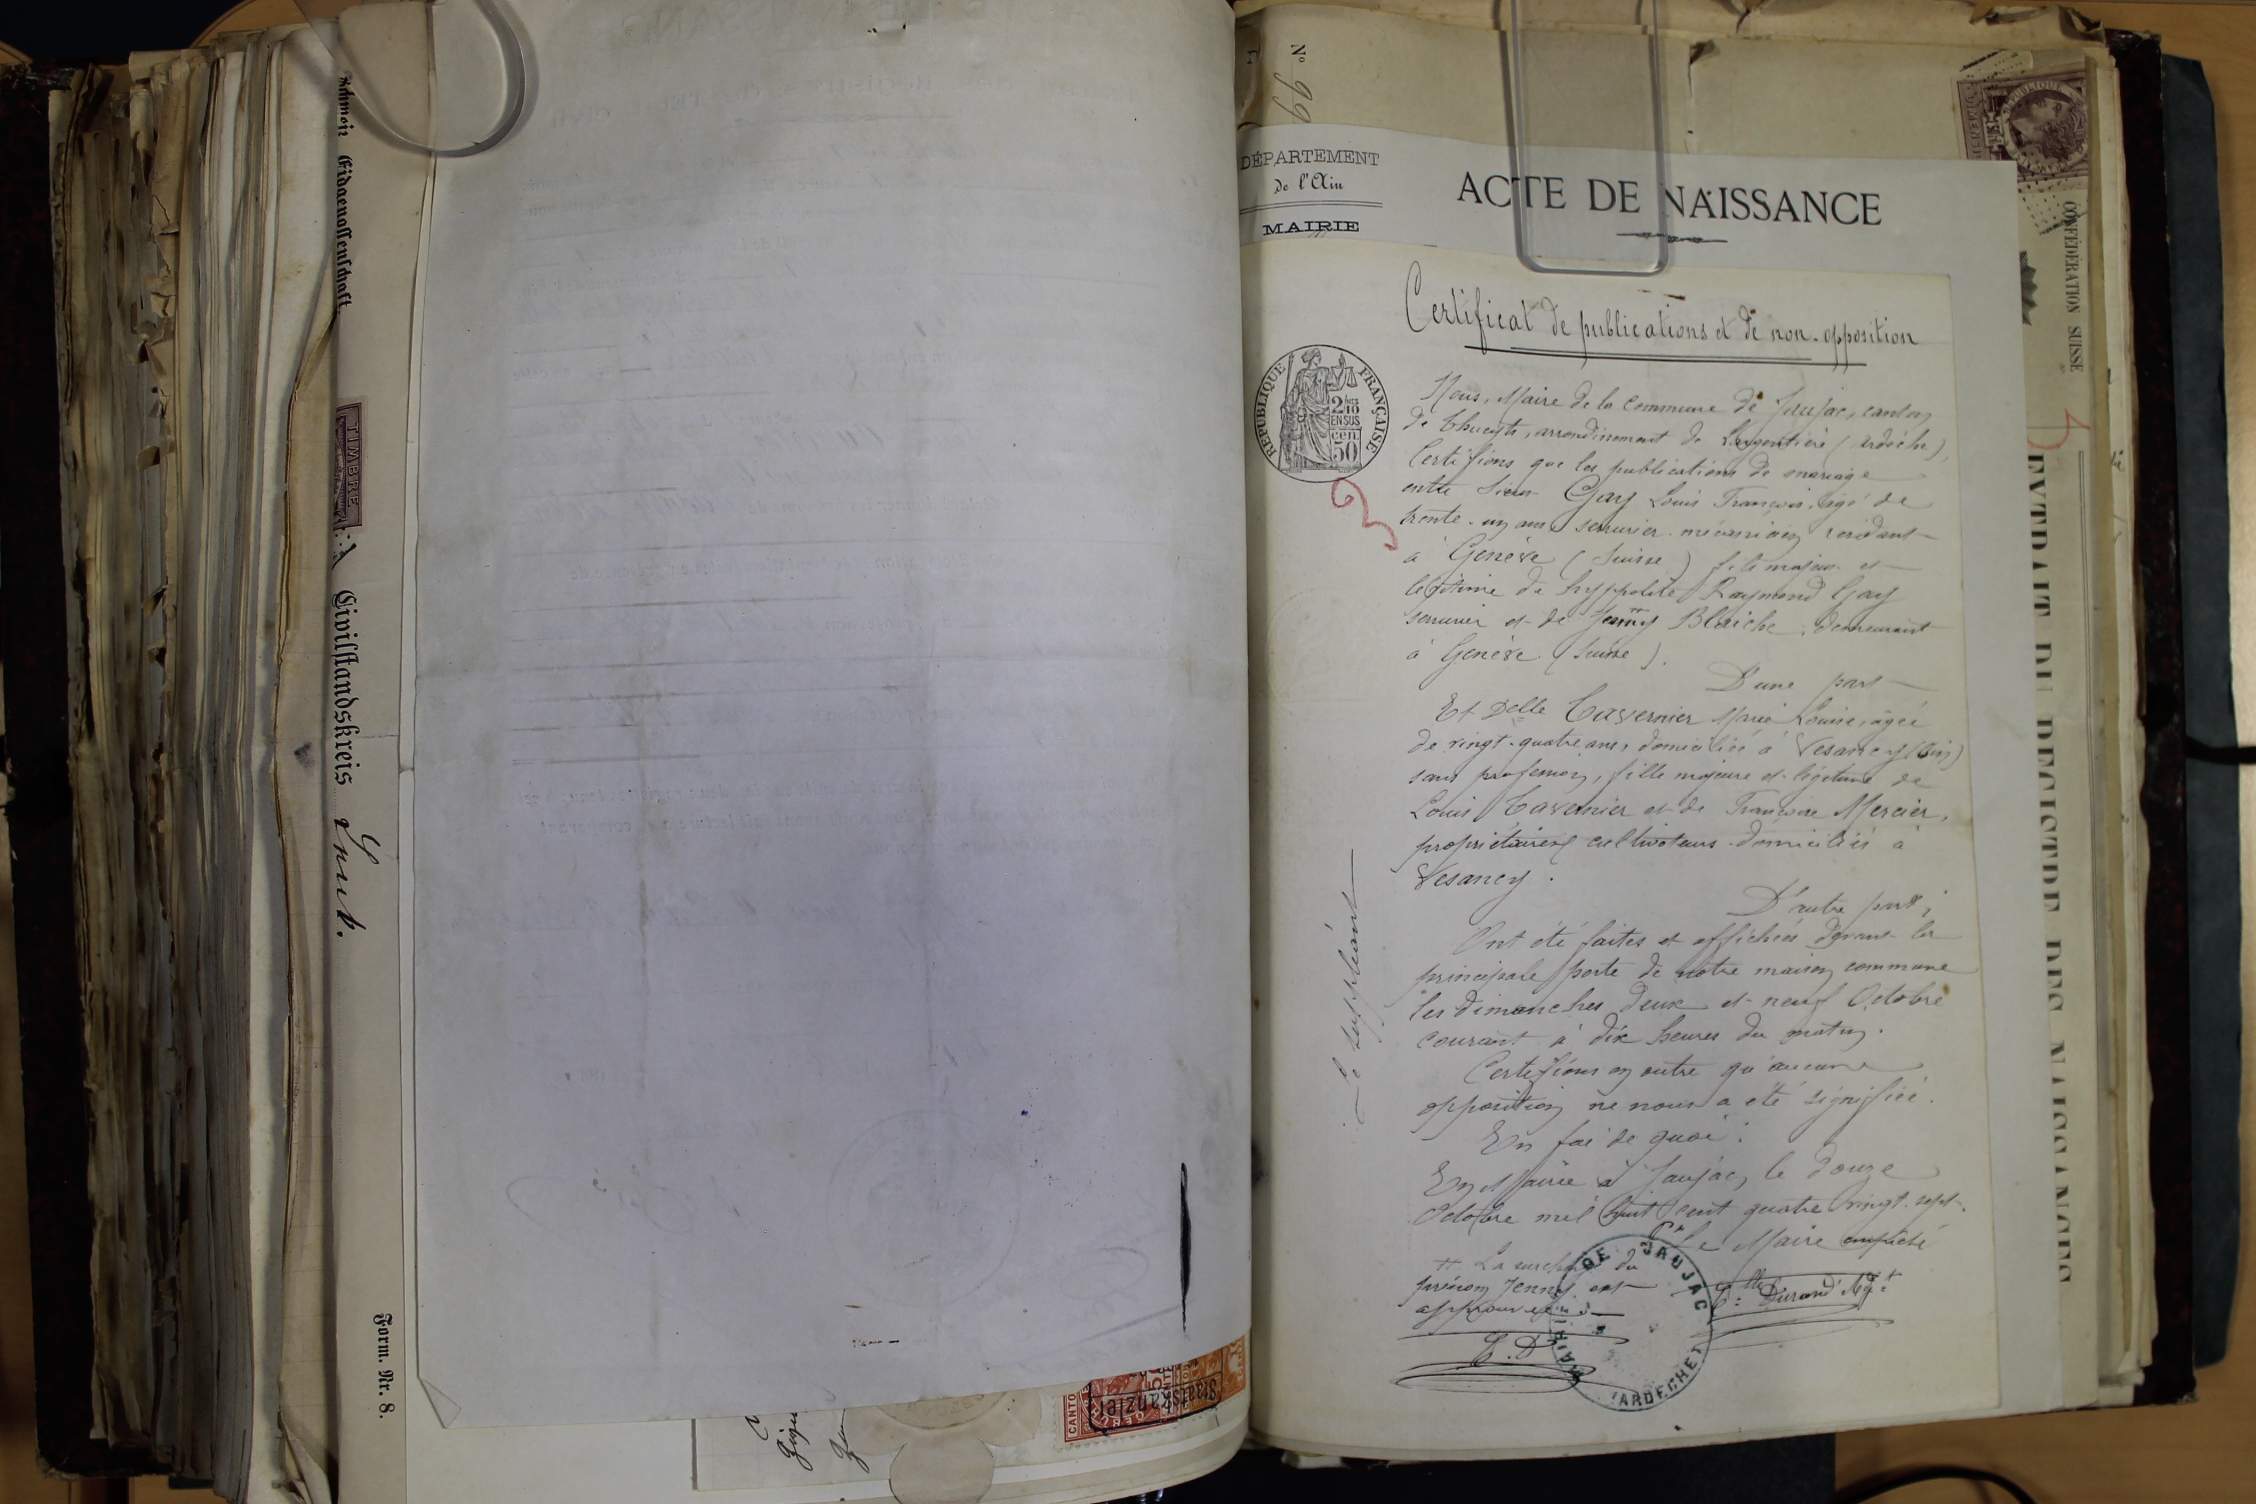 Schweiz. Eidgenossenschaft.
TIMBRE
Civilstandskreis
Form. Nr. 8.
CANTO
Staatskanzlei
No 99
DÉPARTEMENT
de l'Ain
MAIRIE
ACTE DE NAISSANCE
CONFÉDÉRATION SUISSE
EXTRAIT DU REGISTRE DES NAISSANCES
RÉPUBLIQUE FRANÇAISE
2/10
EN SUS
cen.
50
Certificat de publications et de non-opposition
Nous, Maire de la commune de Jaujac, canton
de Thueyts, arrondissement de Largentière (Ardèche),
Certifions que les publications de mariage
entre Sieur Gay Louis François, âgé de
trente-un ans serrurier-mécanicien résidant
à Genève (Suisse) fils majeur et
légitime de Hyppolite Raymond Gay
serrurier et de Jenny Blaiche, demeurant
à Genève (Suisse).
D'une part
Et Delle Tavernier Marie Louise, âgée
de vingt-quatre ans, domiciliée à Vesancy (Ain)
sans profession, fille majeure et légitime de
Louis Tavernier et de Françoise Mercier,
propriétaires cultivateurs domiciliés à
Vesancy.
D'autre part,
Ont été faites et affichées devant la
principale porte de notre maison commune
les dimanches deux et neuf Octobre
courant à dix heures du matin.
Certifions en outre qu'aucune
opposition ne nous a été signifiée.
En foi de quoi :
En Mairie à Jaujac, le douze
Octobre mil huit cent quatre vingt-sept.
Pr le Maire empêché
Le suppléant
La surcharge du
prénom Jenny est
approuvée
Durand
E. D
MAIRIE DE JAUJAC
(ARDECHE)